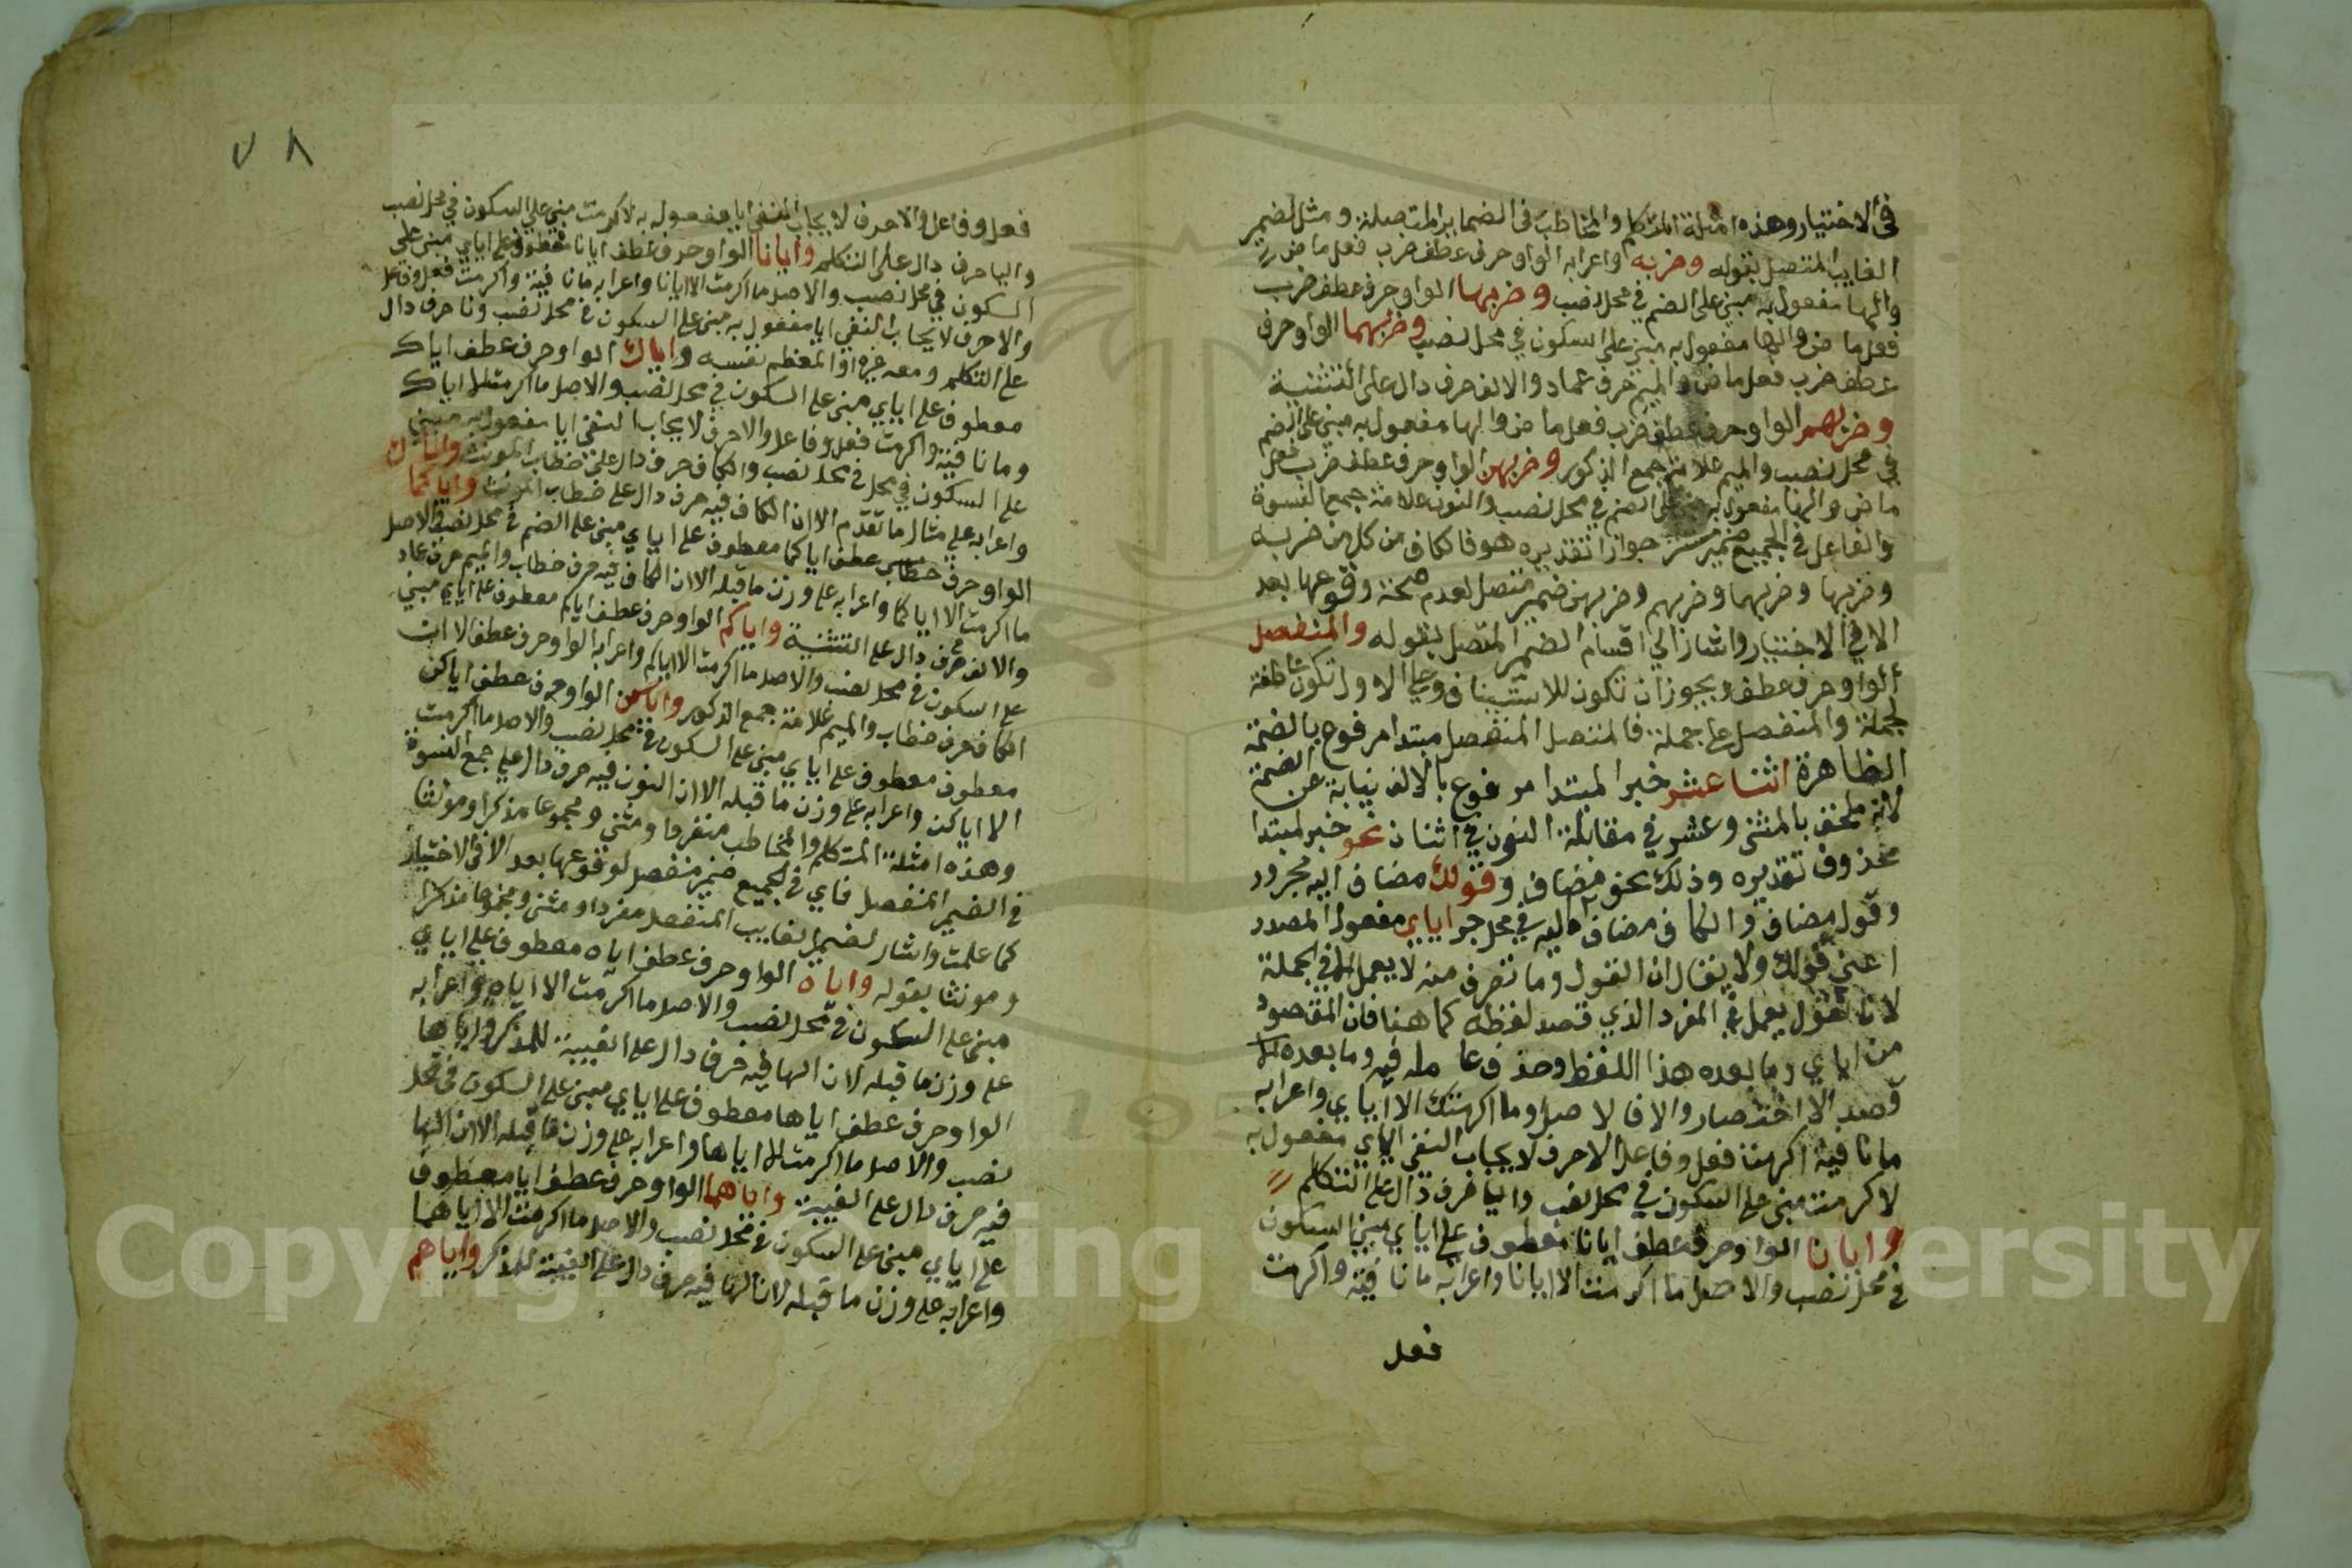 في الاختيار وهذه امثلة المتكلم والمخاطب في الضماير المتصلة ومثل لضمير
الغايب المتصل بقوله وضربه واعرابه الواو حرف عطف ضرب فعل ماض
والها مفعول به مبني على الضم في محل نصب وضربها الواو حرف عطف ضرب
فعل ماض والها مفعول به مبني على السكون في محل نصب وضربهما الواو حرف
عطف ضرب فعل ماض والميم حرف عماد والالف حرف دال على التثنية
وضربهم الواو حرف عطف ضرب فعل ماض والها مفعول به مبني على الضم
في محل نصب والميم علامة جمع الذكور وضربهن الواو حرف عطف ضرب فعل
ماض والها مفعول به مبني على الضم في محل نصب والنون علامة جمع النسوة
والفاعل في الجميع ضمير مستتر جوازا تقديره هو فالكاف من كل من ضربه
وضربها وضربهما وضربهم وضربهن ضمير متصل لعدم صحة وقوعها بعد
الا في الاختيار واشار الي اقسام الضمير المتصل بقوله والمنفصل
الواو حرف عطف ويجوز ان تكون للاستيناف وعلي الاول تكون عاطفة
لجملة والمنفصل علي جملة فالمتصل المنفصل مبتدا مرفوع بالضمة
الظاهرة اثنا عشر خبر المبتدا مرفوع بالالف نيابة عن الضمة
لانه ملحق بالمثنى وعشر في مقابلة النون في اثنان نحو خبر لمبتدا
محذوف تقديره وذلك نحو مضاف وقولك مضاف اليه مجرور
وقول مضاف والكاف مضاف اليه في محل جر اياي مفعول المصدر
اعني قولك ولا يقال ان القول وما تصرف منه لا يعمل الا في الجملة
لانا نقول يعمل في المفرد الذي قصد لفظه كما هنا فان المقصود
من اياي وما بعده هذا اللفظ وحذف عامله فيه وما بعده
قصد الاختصار والا فالاصل وما اكرمتك الا اياي واعرابه
ما نافية اكرمت فعل وفاعل الا حرف لايجاب النفي اياي مفعول به
لاكرمت مبني على السكون في محل نصب واليا حرف دال على المتكلم
وايانا الواو حرف عطف ايانا معطوف علي اياي مبني السكون
في محل نصب والاصل ما اكرمت الا ايانا واعرابه ما نافية واكرمت
فعل
٧٨
فعل وفاعل والا حرف لايجاب النفي ايا مفعول به لاكرمت مبني على السكون في محل نصب
واليا حرف دال على المتكلم وايانا الواو حرف عطف ايانا معطوف على اياي مبني على
السكون في محل نصب والاصل ما اكرمت الا ايانا واعرابه ما نافية واكرمت فعل وفاعل
والا حرف لايجاب النفي ايا مفعول به مبني على السكون في محل نصب ونا حرف دال
على المتكلم ومعه غيره او المعظم نفسه واياك الواو حرف عطف اياك
معطوف على اياي مبني على السكون في محل نصب والاصل ما اكرمت الا اياك
وما نافية واكرمت فعل وفاعل والا حرف لايجاب النفي ايا مفعول به مبني
على السكون في محل في محل نصب والكاف حرف دال على خطاب المونث واياك
واعرابه على مثال ما تقدم الا ان الكاف فيه حرف دال على خطاب المونث واياكما
الواو حرف خطاب عطف اياكما معطوف على اياي مبني على الضم في محل نصب والاصل
ما اكرمت الا اياكما واعرابه على وزن ما قبله الا ان الكاف فيه حرف خطاب والميم حرف عماد
والالف حرف دال على التثنية واياكم الواو حرف عطف اياكم معطوف على اياي مبني
على السكون في محل نصب والاصل ما اكرمت الا اياكم واعرابه الواو حرف عطف الا ان
الكاف حرف خطاب والميم علامة جمع الذكور واياكن الواو حرف عطف اياكن
معطوف معطوف على اياي مبني على السكون في محل نصب والاصل ما اكرمت
الا اياكن واعرابه على وزن ما قبله الا ان النون فيه حرف دال علي جمع النسوة
وهذه امثلة المتكلم والمخاطب منفردا ومثنى ومجموعا مذكرا ومونثا
في الضمير المنفصل فاي في الجميع ضمير منفصل لوقوعها بعد الا في الاختيار
كما علمت واشار لضمير الغايب المنفصل مفردا ومثنى ومجموعا مذكرا
ومونثا بقوله واياه الواو حرف عطف اياه معطوف على اياي
مبني على السكون في محل نصب والاصل ما اكرمت الا اياه واعرابه
على وزن ما قبله لان الها فيه حرف دال على الغيبة للمذكر واياها
الواو حرف عطف اياها معطوف على اياي مبني على السكون في محل
نصب والاصل ما اكرمت الا اياها واعرابه على وزن ما قبله الا ان الها
فيه حرف دال على الغيبة واياهما الواو حرف عطف ايا معطوف
على اياي مبني على السكون في محل نصب والاصل ما اكرمت الا اياهما
واعرابه على وزن ما قبله لان الها فيه حرف دال على الغيبة للمذكر واياهم